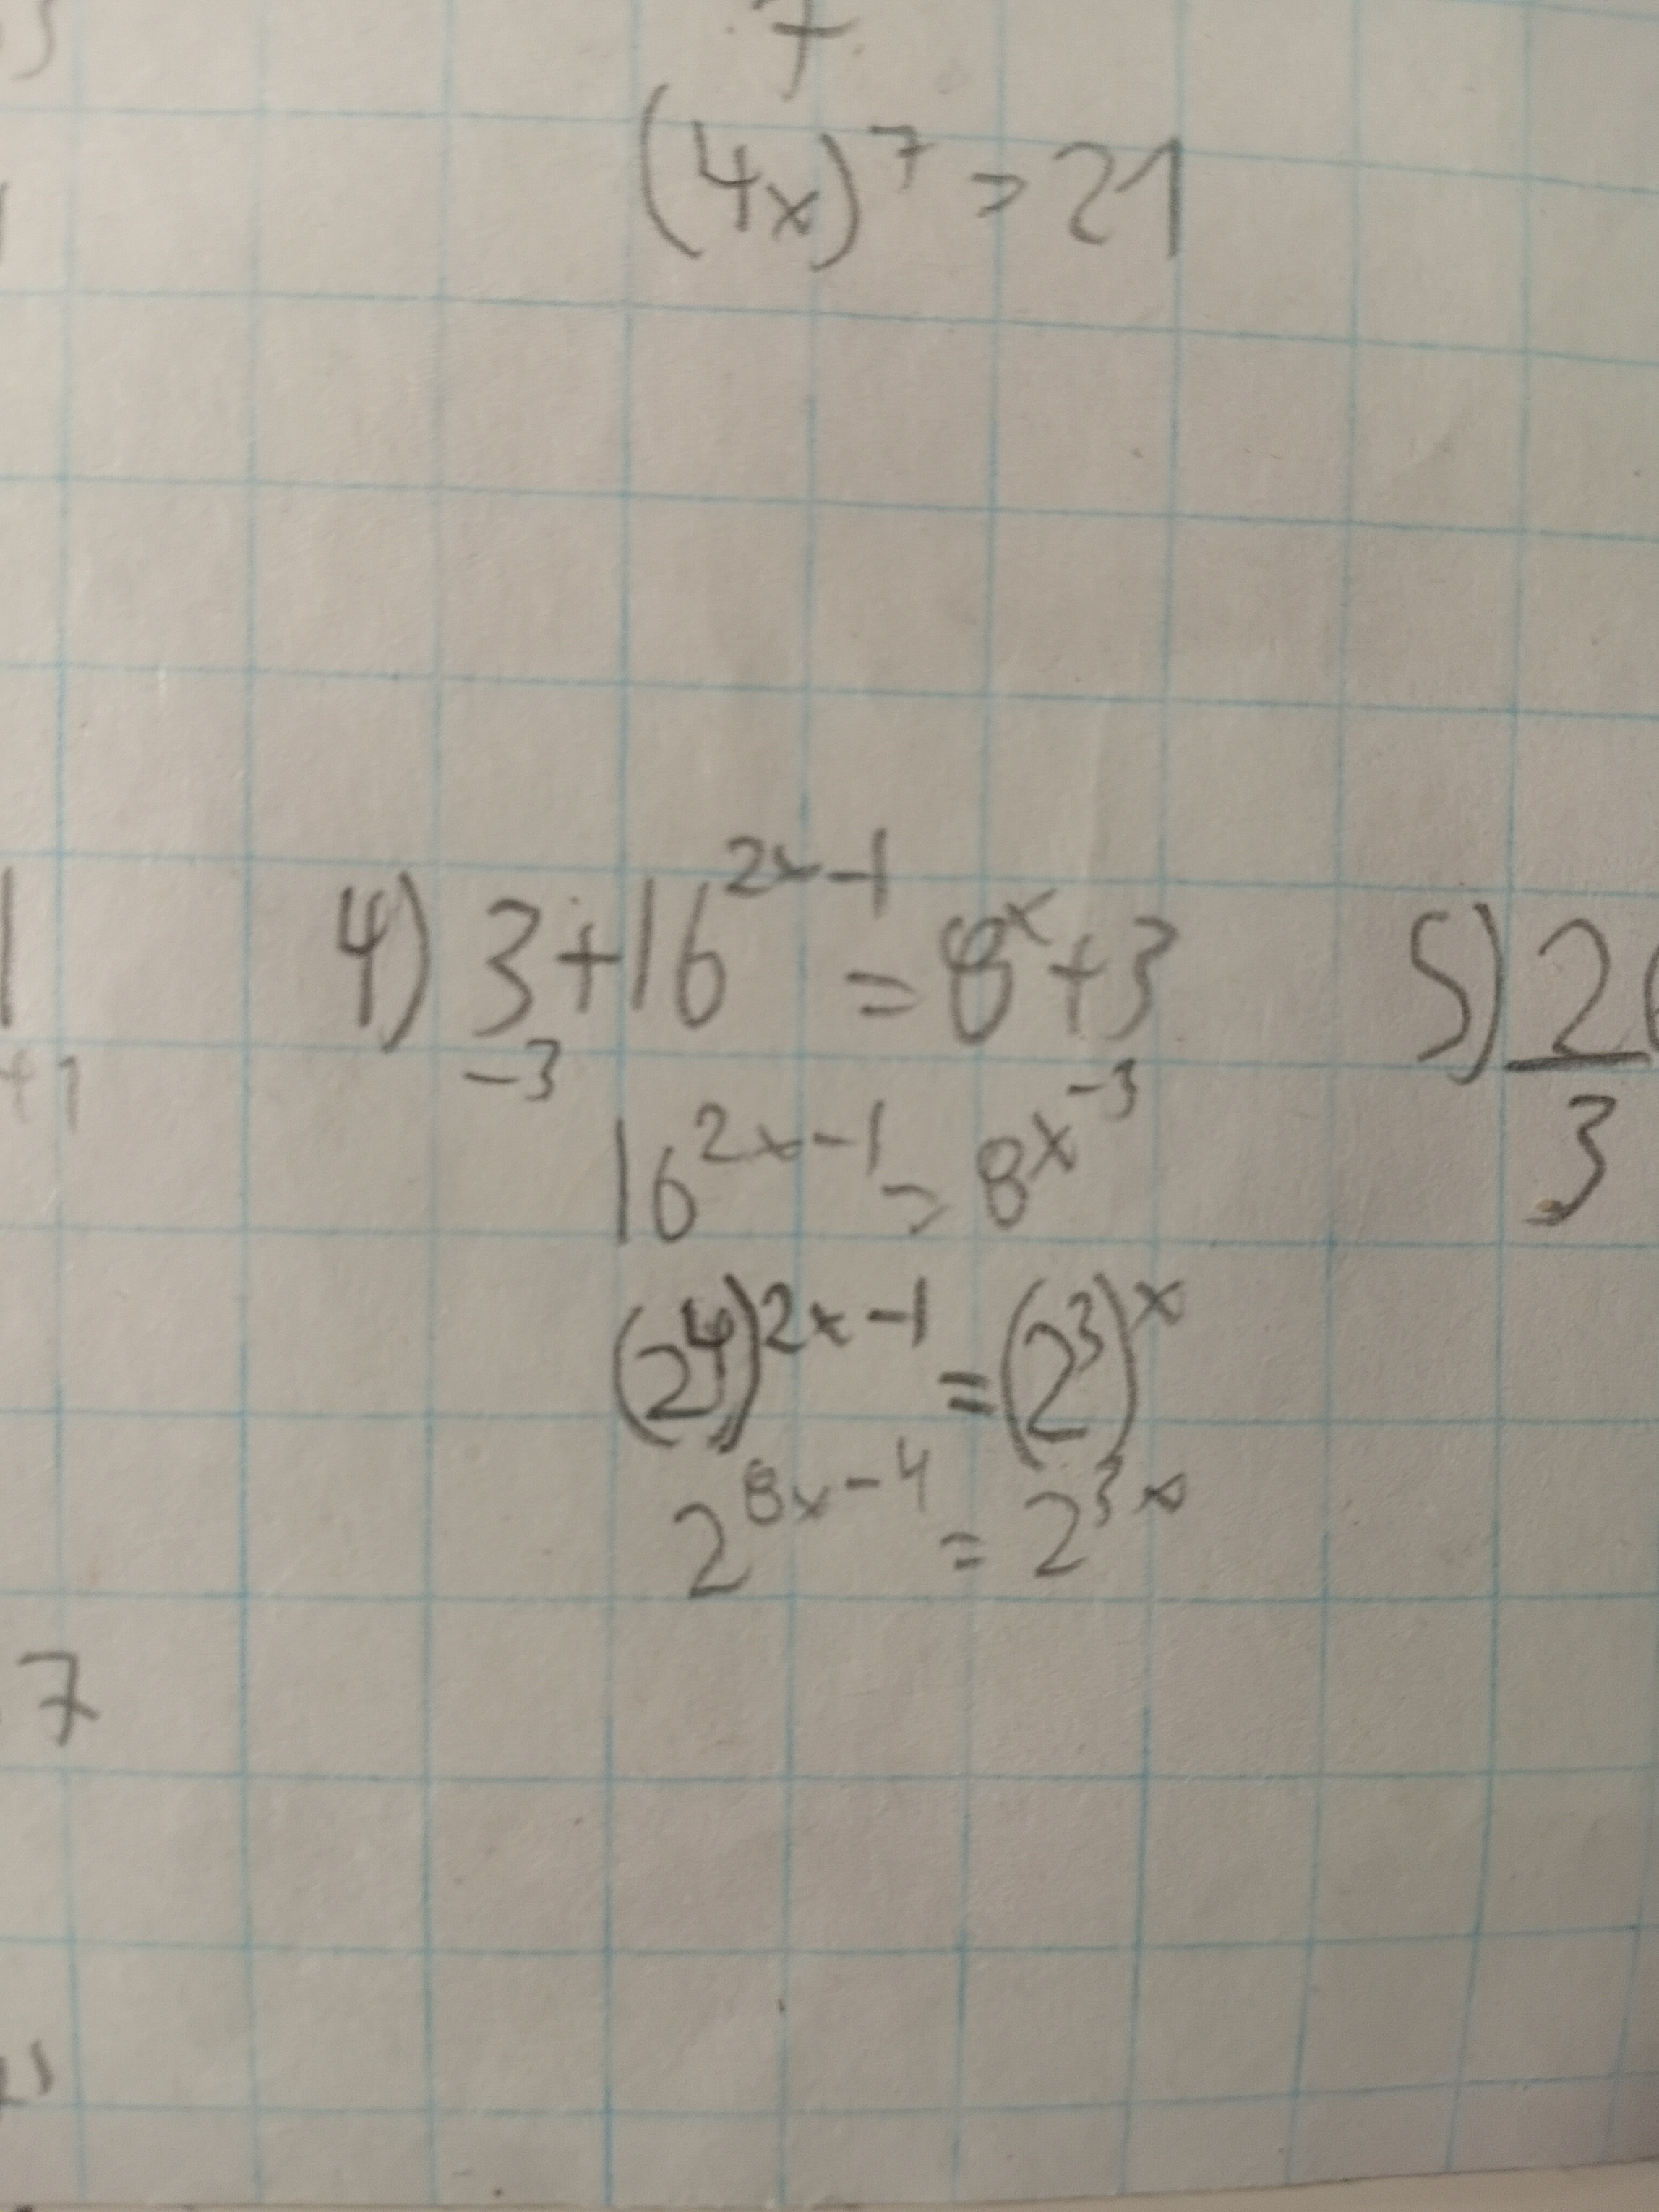 7
(4x)⁷ = 21
4) 3+16^(2x-1) = 8^x+3
-3 -3
16^(2x-1) = 8^x
(2⁴)^(2x-1) = (2³)^x
2^(8x-4) = 2^(3x)
1
+1
7
5) 2
3